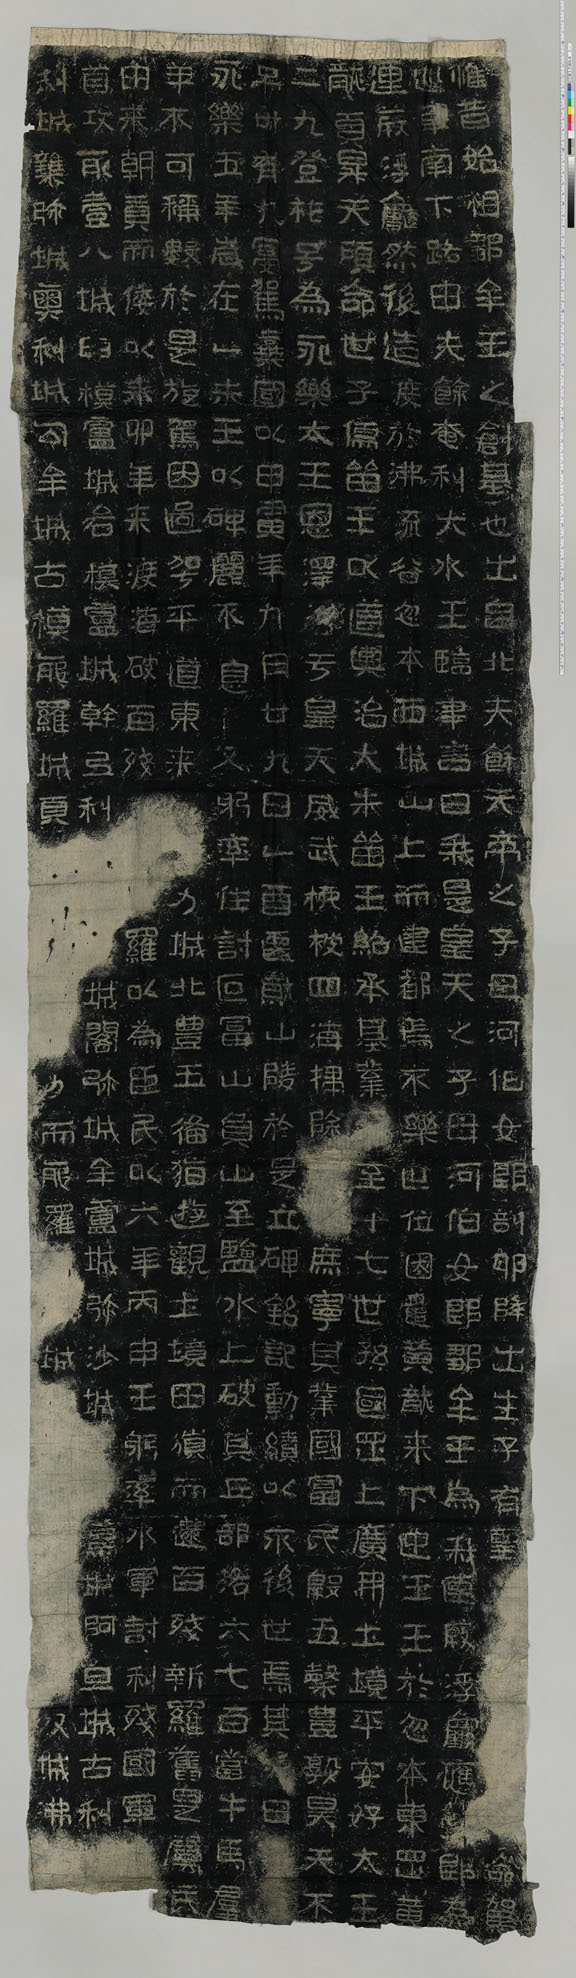 惟昔始祖鄒牟王之創基也出自北夫餘天帝之子母河伯女郎剖卵降出生子有聖命駕
巡車南下路由夫餘奄利大水王臨津言曰我是皇天之子母河伯女郎鄒牟王為我連葭浮龜應即為
連葭浮龜然後造渡於沸流谷忽本西城山上而建都焉不樂世位因遣黃龍来下迎王王於忽本東罡黃
龍首昇天顧命世子儒留王以道興治大朱留王紹承基業至十七世孫國罡上廣開土境平安好太王
二九登祚号為永樂太王恩澤于皇天威武振被四海掃除庶寧其業國富民殷五穀豊熟昊天不
弔卅有九寔駕棄國以甲寅年九月廿九日乙酉遷就山陵於是立碑銘記勳績以永後世焉其曰
永樂五年歲在乙未王以碑麗不息又躬率住討叵富山負山至鹽水上破其丘部洛六七百當牛馬羣
羊不可稱數於是旋駕因過平道東来力城北豊五備猶遊觀土境田獵而還百殘新羅舊是屬民
由来朝貢而倭以来卯年来渡海破百殘羅以為臣民以六年丙申王躬率水軍討利殘國軍
首攻取壹八城臼模盧城各模盧城幹弖利城閣弥城牟盧城弥沙城城阿旦城古利
利城雜弥城奧利城勾牟城古模耶羅城頁而耶羅城城沸